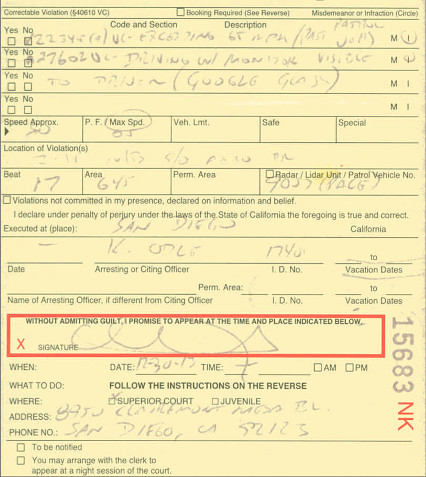 Correctable Violation (§40610 VC) Booking Required (See Reverse) Misdemeanor or Infraction (Circle)
Yes No Code and Section Description
22349(a) VC- EXCEEDING 65 MPH M I
Yes No
27602 VC- DRIVING W/ MONITOR VISIBLE M I
Yes No
TO DRIVER (GOOGLE GLASS) M I
Yes No
M I
Speed Approx. P. F. / Max Spd. Veh. Lmt. Safe Special
80 65
Location of Violation(s)
I-15 S/O AERO DR
Beat Area Perm. Area Radar / Lidar Unit / Patrol Vehicle No.
17 645 (PACE)
Violations not committed in my presence, declared on information and belief.
I declare under penalty of perjury under the laws of the State of California the foregoing is true and correct.
Executed at (place): SAN DIEGO California
K. to
Date Arresting or Citing Officer I. D. No. Vacation Dates
Perm. Area: to
Name of Arresting Officer, if different from Citing Officer I. D. No. Vacation Dates
WITHOUT ADMITTING GUILT, I PROMISE TO APPEAR AT THE TIME AND PLACE INDICATED BELOW.
X SIGNATURE
WHEN: DATE: TIME: AM PM
WHAT TO DO: FOLLOW THE INSTRUCTIONS ON THE REVERSE
WHERE: SUPERIOR COURT JUVENILE
ADDRESS: 8950 CLAIREMONT MESA BL.
PHONE NO.: SAN DIEGO, CA 92123
To be notified
You may arrange with the clerk to
appear at a night session of the court.
15683 NK